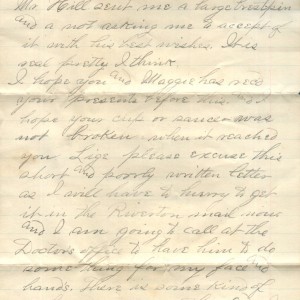 Mr. Hill sent me a large
and a not asking me to accept of
it with his best wishes. It is
real pretty I think.
I hope you and Maggie has rece
your presents before this. and I
hope your cup or saucer was
not broken when it reached
you Lize please excuse this
short and poorly written letter
as I will have to hurry to get
it in the Riverton mail
and I am going to call at the
Doctors office to have him to do
something for my face and
hands. There is some kind of